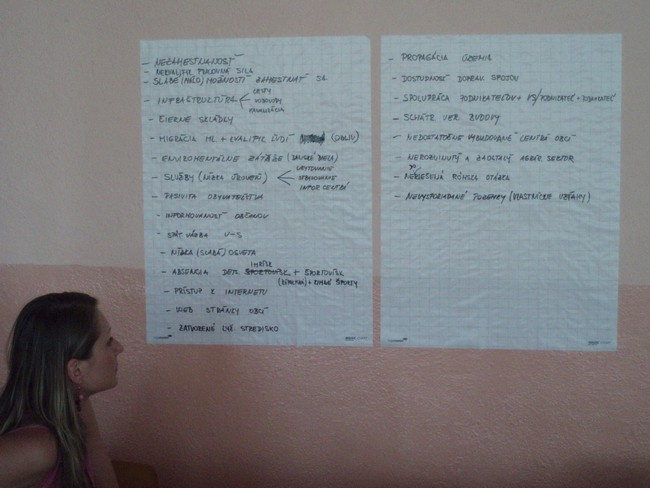 - NEZAMESTNANOSŤ
- NEKVALIFIK. PRACOVNÁ SILA
- SLABÉ (MÁLO) MOŽNOSTI ZAMESTNAŤ SA
- INFRAŠTRUKTÚRA
CESTY
VODOVODY
KANALIZÁCIA
- ČIERNE SKLÁDKY
- MIGRÁCIA ML. + KVALIFIK. ĽUDÍ (ODLIV)
- ENVIROMENTÁLNE ZÁŤAŽE (BANSKÉ DIELA)
- SLUŽBY (NÍZKA ÚROVEŇ)
UBYTOVANIE
STRAVOVANIE
INFOR. CENTRÁ
- PASIVITA OBYVATEĽSTVA
- INFORMOVANOSŤ OBČANOV
- SPÄT. VÄZBA V-S
- NÍZKA (SLABÁ) OSVETA
- ABSENCIA DETS. IHRÍSK + ŠPORTOVÍSK
+ ZIMNÉ ŠPORTY
- PRÍSTUP K INTERNETU
- WEB STRÁNKY OBCÍ
- ZATVORENÉ LYŽ. STREDISKO
- PROPAGÁCIA ÚZEMIA
- DOSTUPNOSŤ DOPRAV. SPOJOV
- SPOLUPRÁCA PODNIKATEĽOV + VS/PODNIKATEĽ + PODNIKATEĽ
- SCHÁTR. VER. BUDOVY
- NEDOSTATOČNE VYBUDOVANÉ CENTRÁ OBCÍ
- NEROZVINUTÝ A ZAOSTALÝ AGRÁR. SEKTOR
- NERIEŠENÁ RÓMSKA OTÁZKA
- NEVYSPORIADANÉ POZEMKY (VLASTNÍCKE VZŤAHY)